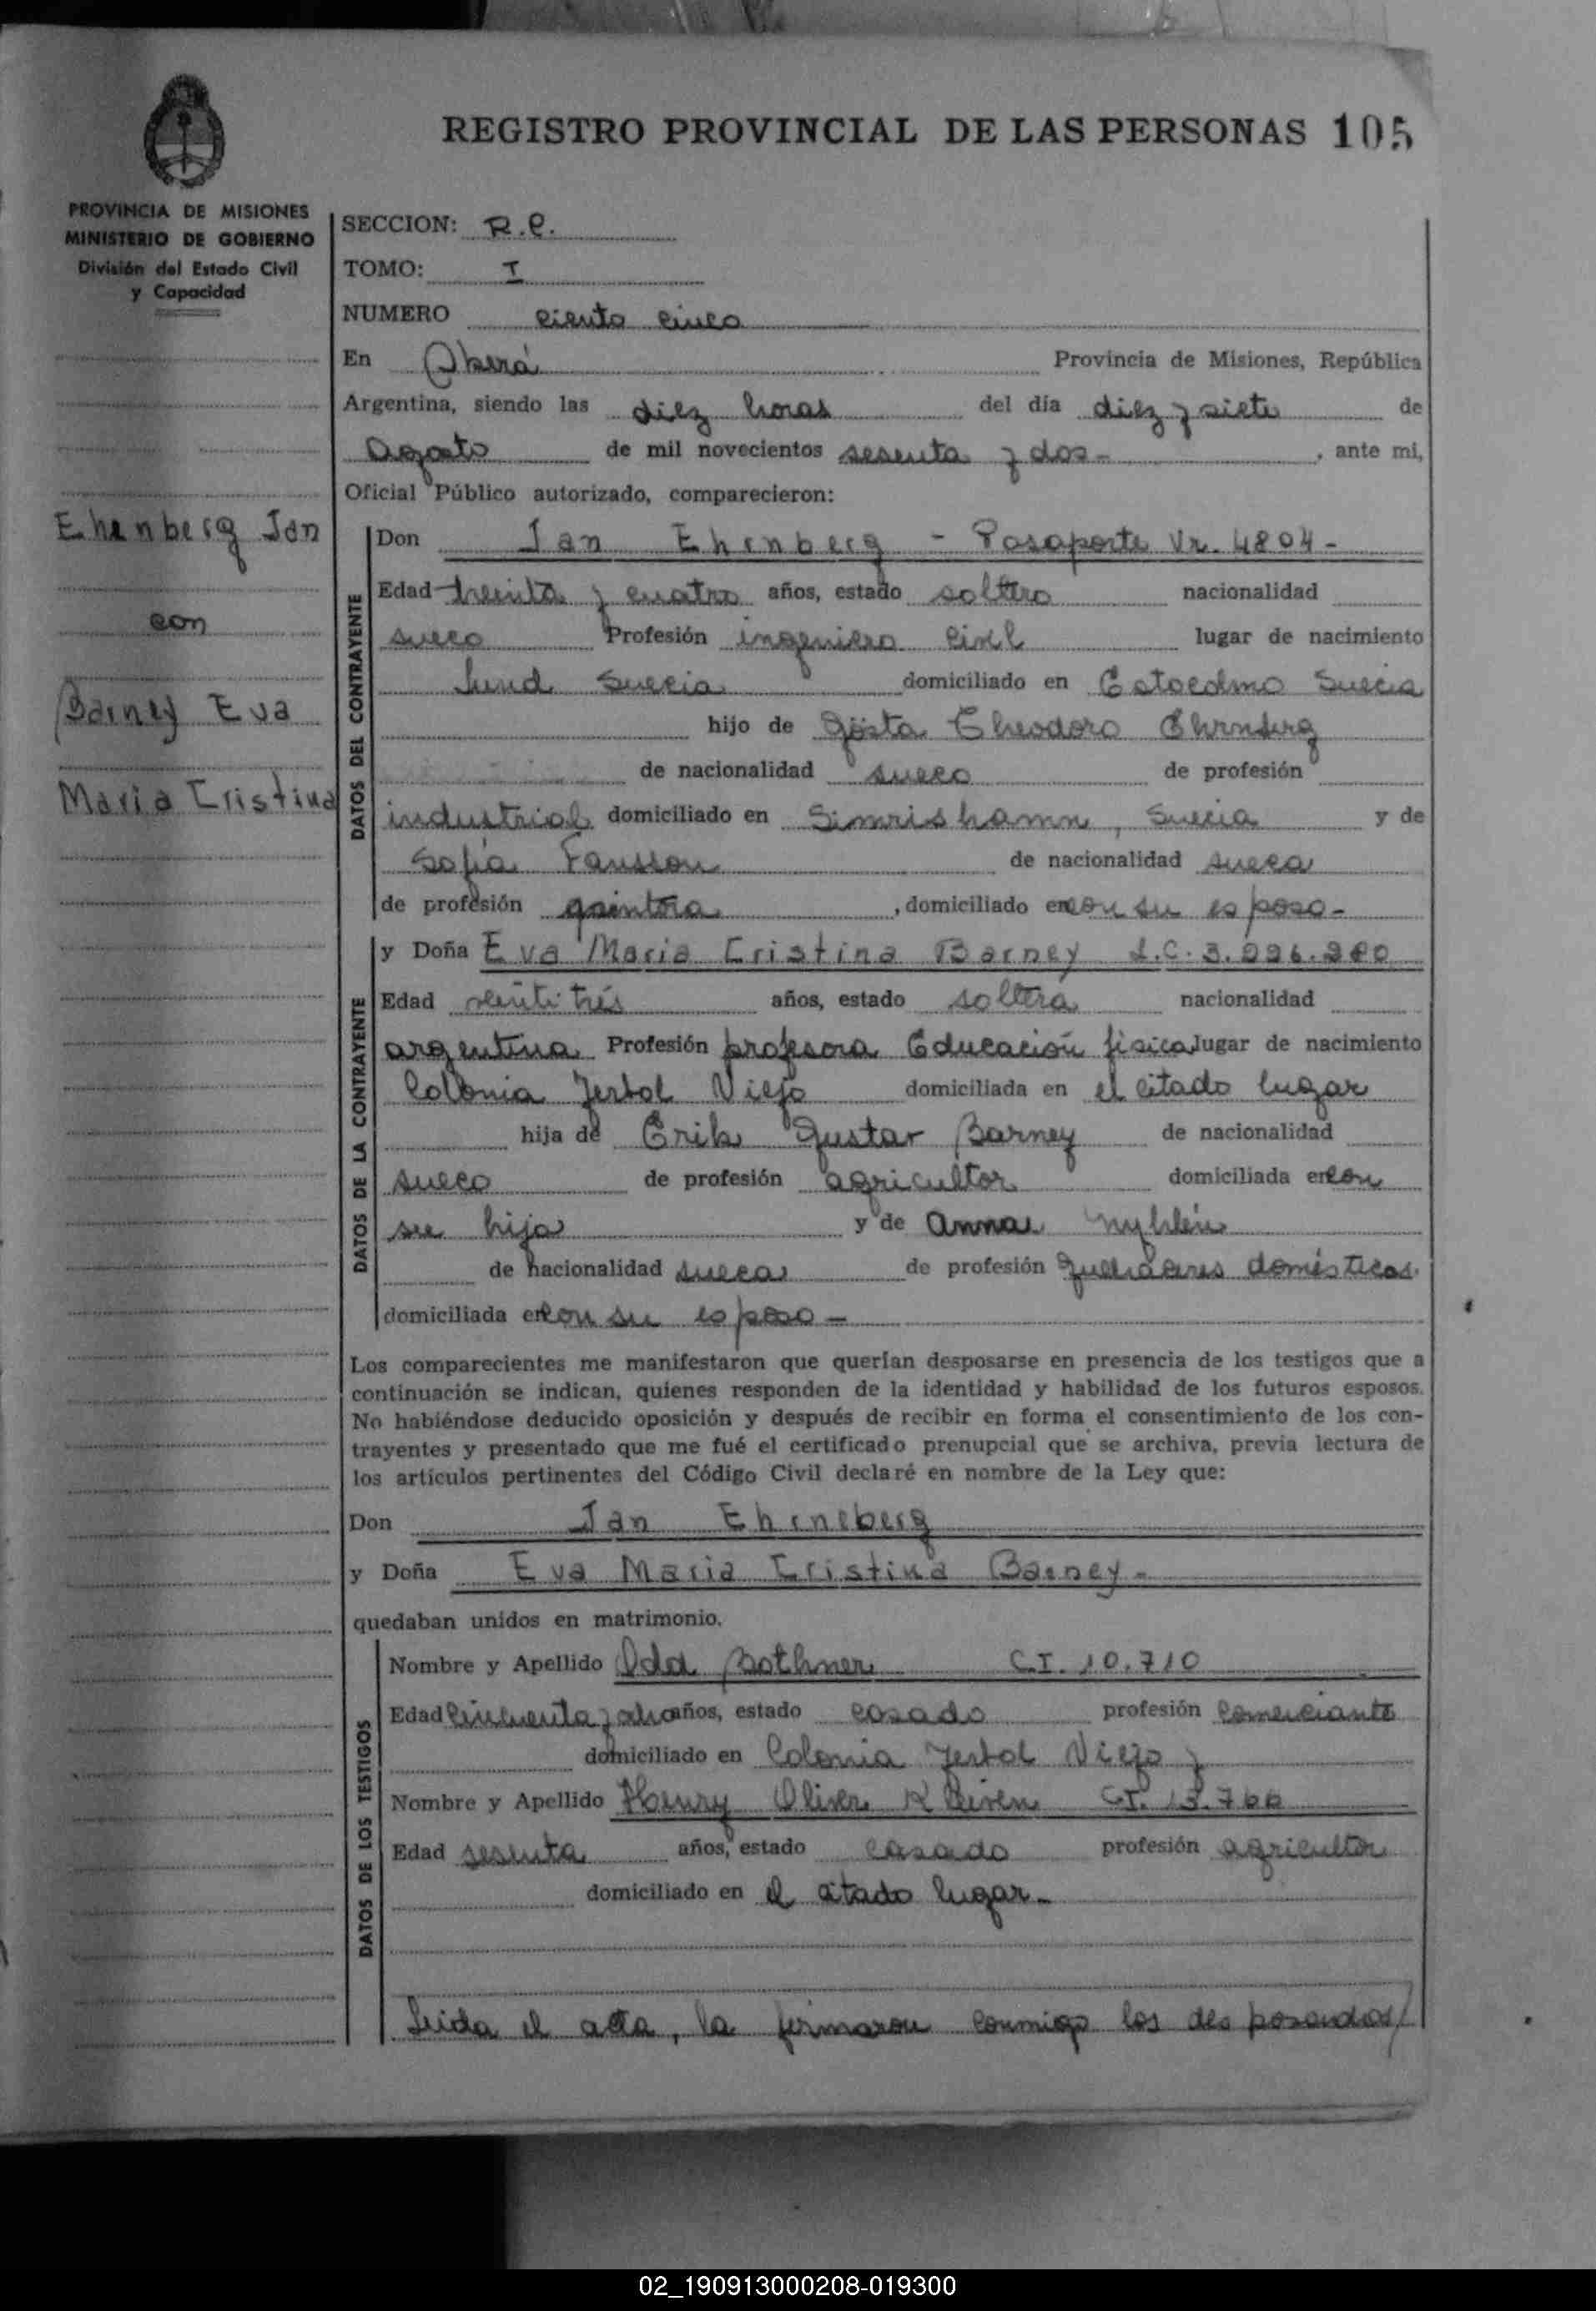 REGISTRO PROVINCIAL DE LAS PERSONAS 105
PROVINCIA DE MISIONES
MINISTERIO DE GOBIERNO
División del Estado Civil
y Capacidad
SECCION: R.C.
TOMO: I
NUMERO ciento cinco
En Oberá Provincia de Misiones, República
Argentina, siendo las diez horas del día diez y siete de
Agosto de mil novecientos sesenta y dos- , ante mi,
Oficial Público autorizado, comparecieron:
Ehrnberg Jan
con
Barney Eva
Maria Cristina
DATOS DEL CONTRAYENTE
Don Jan Ehrnberg - Pasaporte Nr. 4804-
Edad treinta y cuatro años, estado soltero nacionalidad
sueco Profesión ingeniero civil lugar de nacimiento
Lund Suecia domiciliado en Estocolmo Suecia
hijo de Gösta Theodoro Ehrnberg
de nacionalidad sueco de profesión
industrial domiciliado en Simrishamn, Suecia y de
Sofía de nacionalidad sueca
de profesión , domiciliado en con su esposo-
DATOS DE LA CONTRAYENTE
y Doña Eva Maria Cristina Barney L.C. 3.
Edad veintitrés años, estado soltera nacionalidad
argentina Profesión profesora Educación física lugar de nacimiento
Colonia Yerbal Viejo domiciliada en el citado lugar
hija de Erik Gustav Barney de nacionalidad
sueco de profesión agricultor domiciliada en con
su hija y de Anna Nyhlén
de nacionalidad sueca de profesión quehaceres domésticos
domiciliada en con su esposo-
Los comparecientes me manifestaron que querían desposarse en presencia de los testigos que a
continuación se indican, quienes responden de la identidad y habilidad de los futuros esposos.
No habiéndose deducido oposición y después de recibir en forma el consentimiento de los con-
trayentes y presentado que me fué el certificado prenupcial que se archiva, previa lectura de
los artículos pertinentes del Código Civil declaré en nombre de la Ley que:
Don Jan Ehrneberg
y Doña Eva Maria Cristina Barney-
quedaban unidos en matrimonio.
DATOS DE LOS TESTIGOS
Nombre y Apellido Bothner C.I. 10.710
Edad cincuenta y ocho años, estado casado profesión comerciante
domiciliado en Colonia Yerbal Viejo y
Nombre y Apellido Henry Oliver C.I. 13.766
Edad sesenta años, estado casado profesión agricultor
domiciliado en el citado lugar-
Leida el acta, la firmaron conmigo los desposados/
02_190913000208-019300